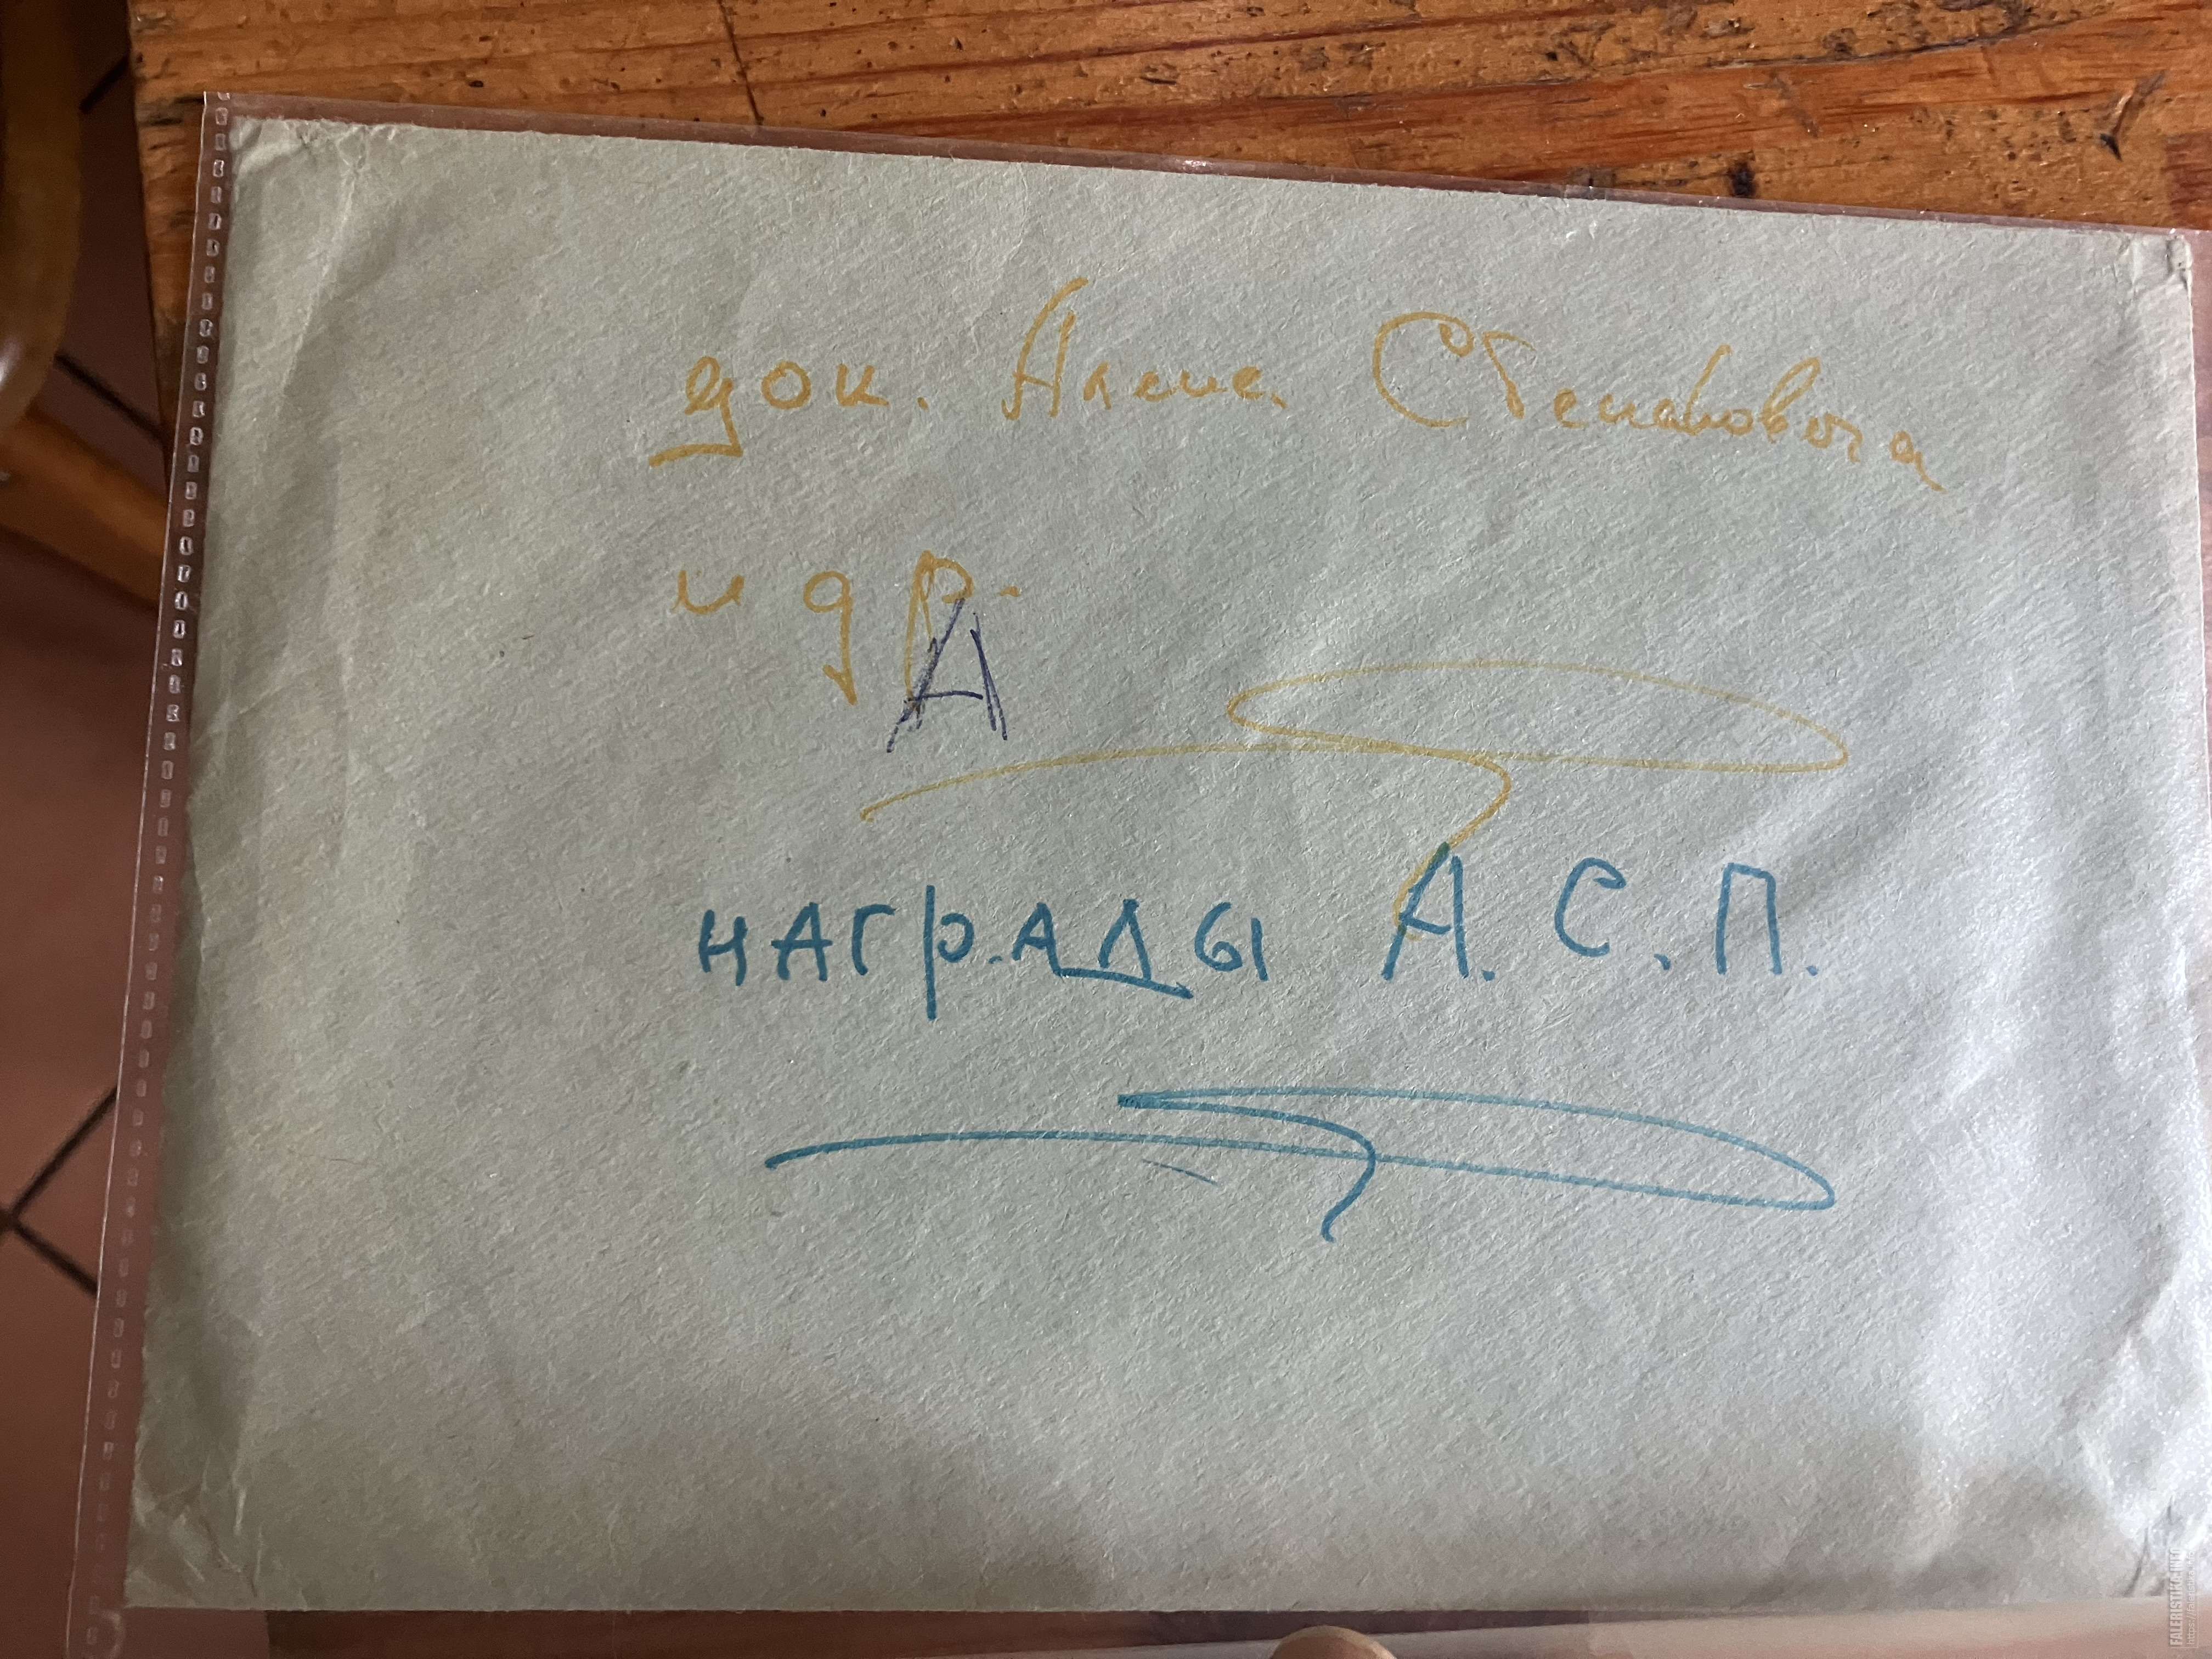 док. Алекс. Степановича
и др.
А
НАГРАДЫ А. С. П.
FALERISTIKA.INFO